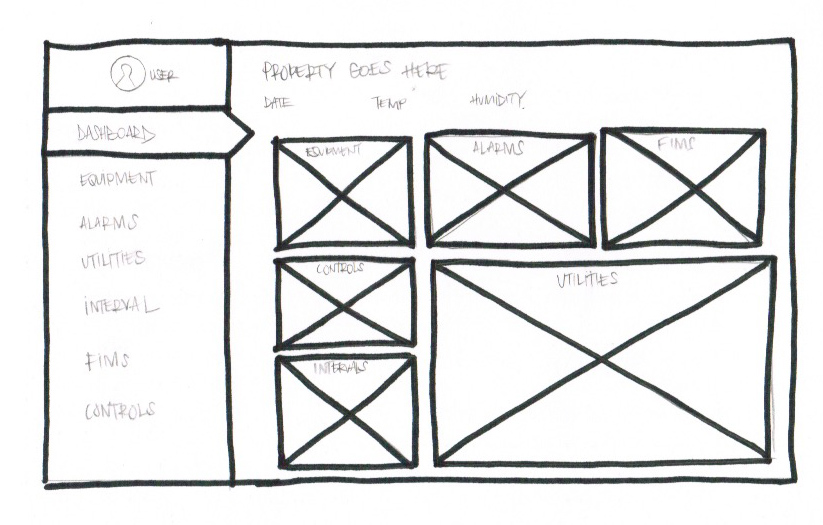 USER
DASHBOARD
EQUIPMENT
ALARMS
UTILITIES
INTERVAL
FIMS
CONTROLS
PROPERTY GOES HERE
DATE TEMP HUMIDITY
EQUIPMENT ALARMS FIMS
CONTROLS
UTILITIES
INTERVALS